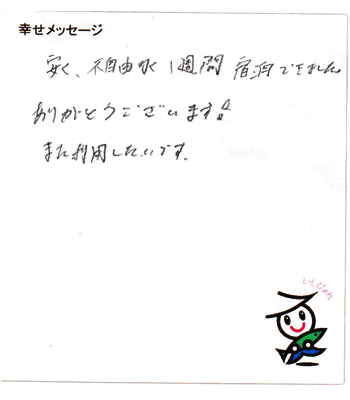 幸せメッセージ
安く、不自由なく1週間宿泊できました。
ありがとうございます!
また利用したいです。